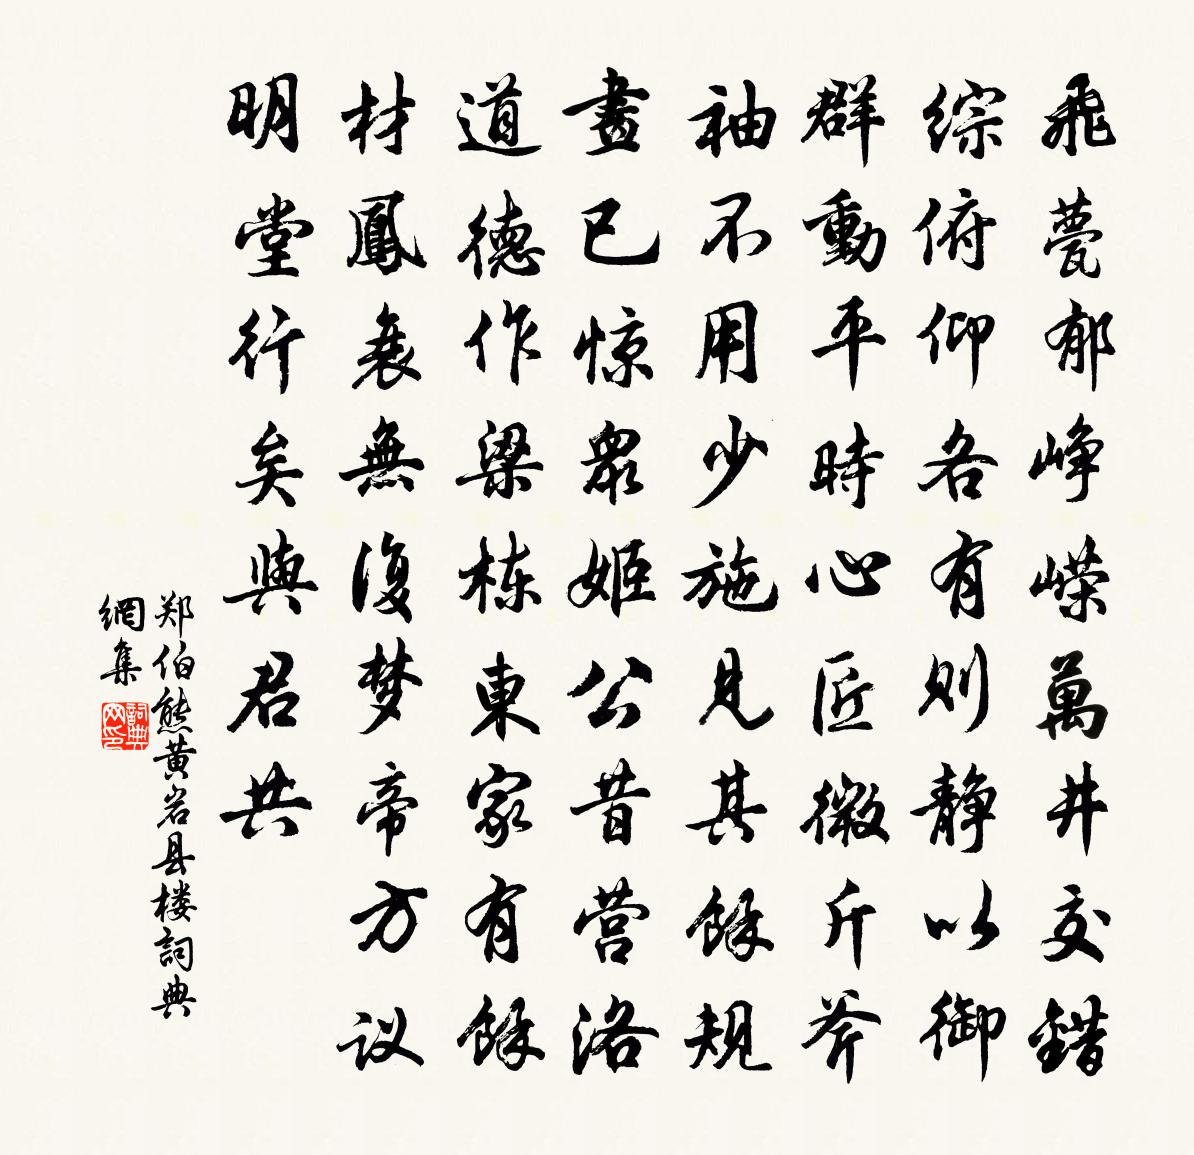 飛甍郁崢嶸萬井交錯
综俯仰各有则静以御
群動平時心匠微斤斧
袖不用少施見其餘規
畫已惊眾姬公昔营洛
道德作梁栋東家有餘
材鳳衰無復梦帝方议
明堂行矣與君共
郑伯熊黄岩县楼詞典
網集
詞典网印